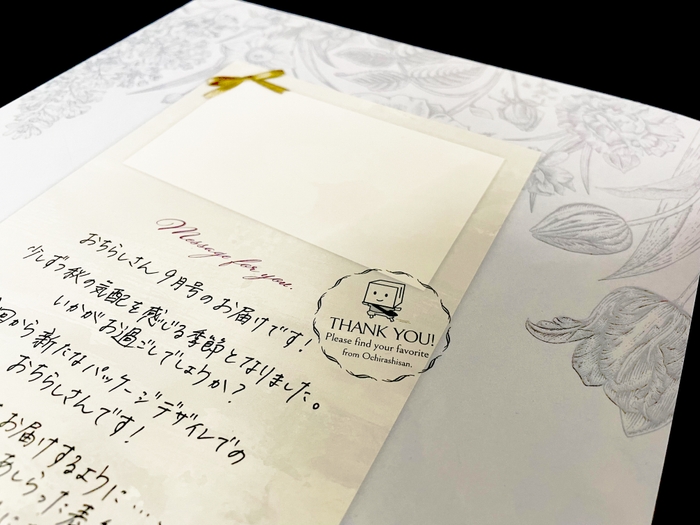 Message for you.
おちらしさん9月号のお届けです!
少しずつ秋の気配を感じる季節となりました。
いかがお過ごしでしょうか?
回から新たなパッケージデザインでの
おちらしさんです!
お届けするように…
あしらった
THANK YOU!
Please find your favorite
from Ochirashisan.